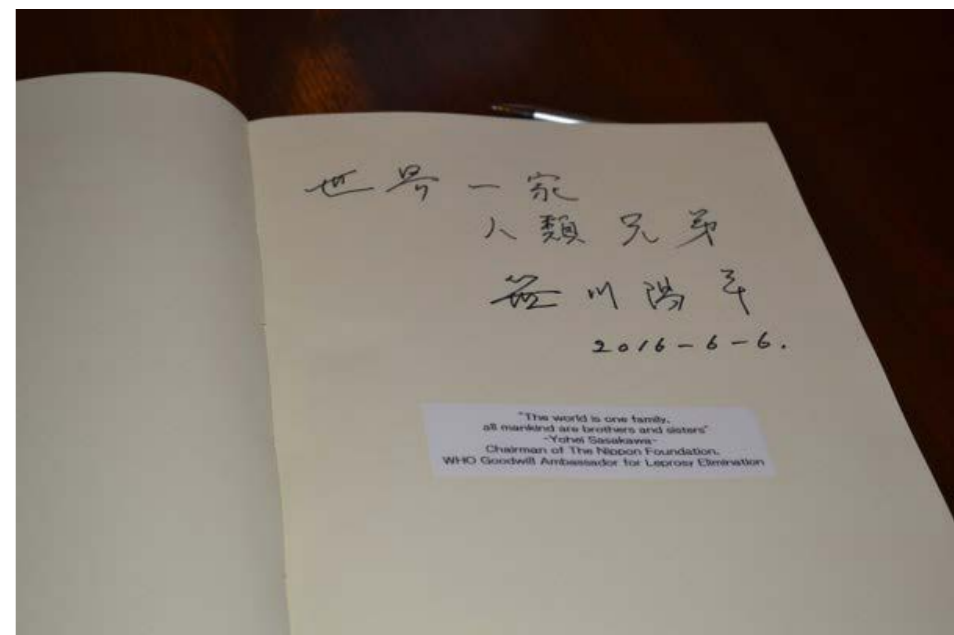 世界一家
人類兄弟
笹川陽平
2016-6-6.
"The world is one family,
all mankind are brothers and sisters"
-Yohei Sasakawa-
Chairman of The Nippon Foundation,
WHO Goodwill Ambassador for Leprosy Elimination